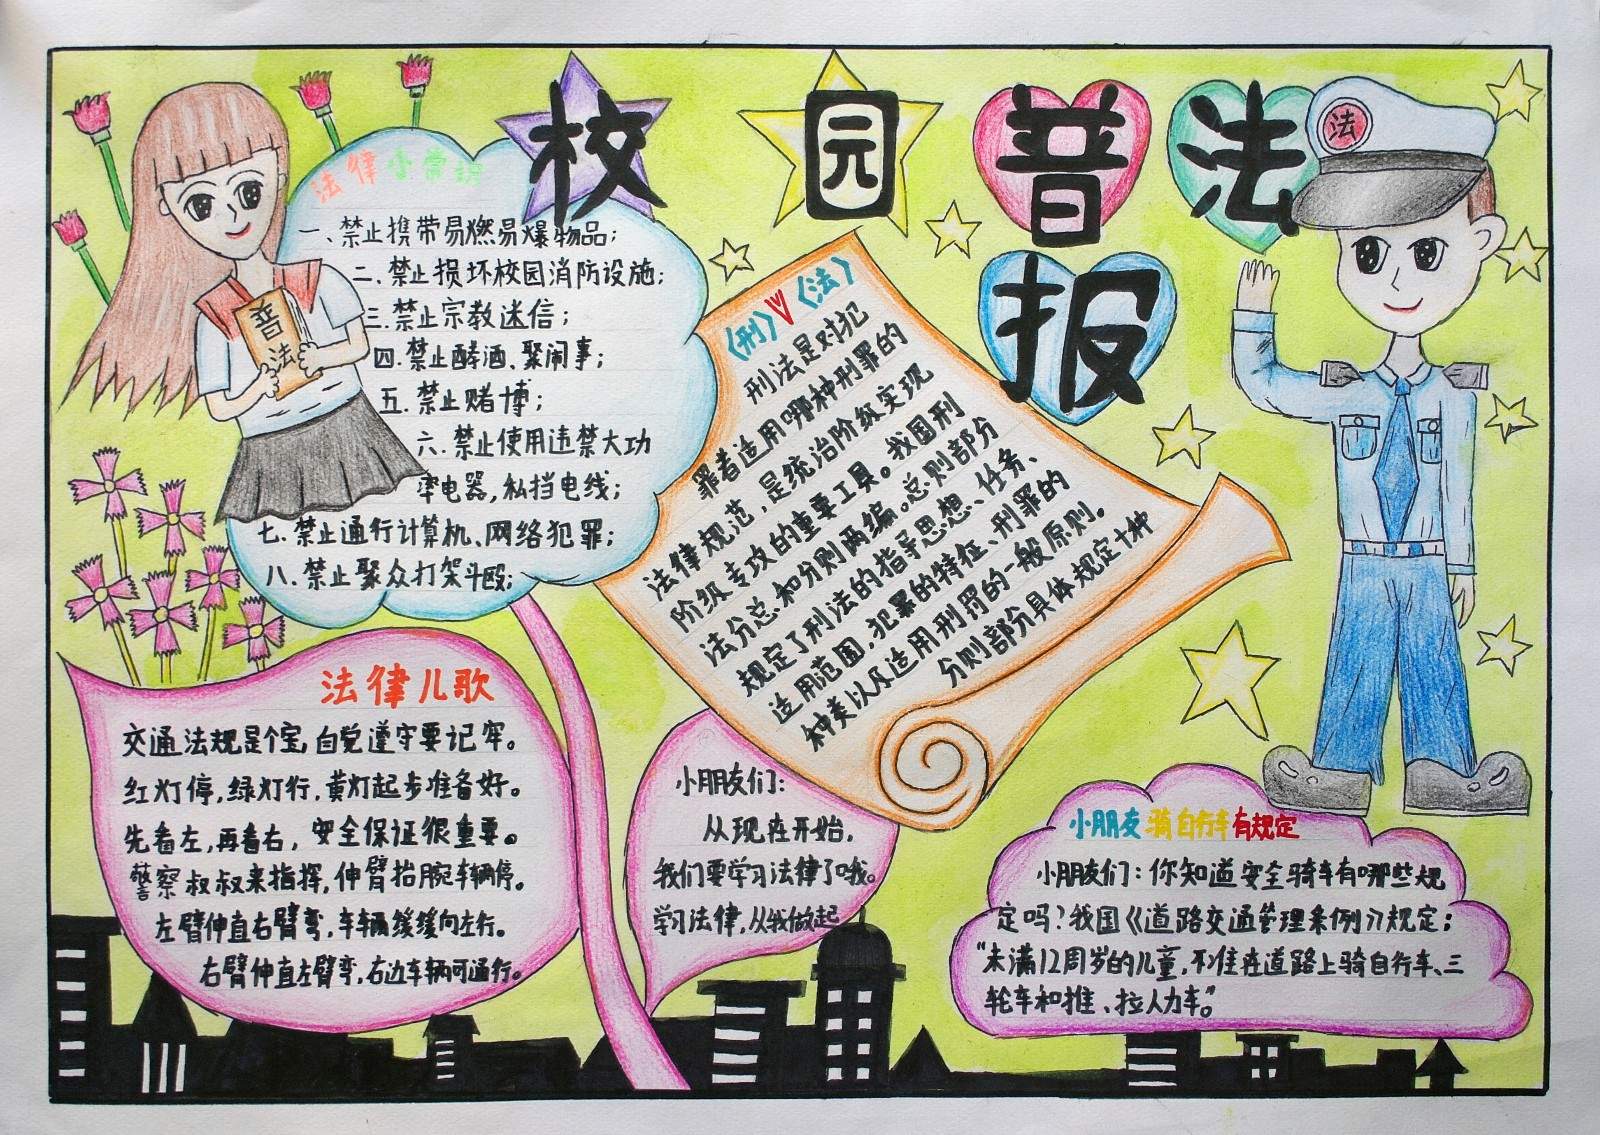 校园普法报
法
普法
法律小常识
一、禁止携带易燃易爆物品；
二、禁止损坏校园消防设施；
三、禁止宗教迷信；
四、禁止酵酒、聚闹事；
五、禁止赌博；
六、禁止使用违禁大功
率电器，私挡电线；
七、禁止通行计算机、网络犯罪；
八、禁止聚众打架斗殴；
《刑》V《法》
刑法是对犯
罪者适用哪种刑罪的
法律规范，是统治阶级实现
阶级专攻的重要工具。我国刑
法分总和分则两编。总则部分
规定了刑法的指导思想、任务、
适用范围，犯罪的特征、刑罪的
种类以及适用刑罚的一般原则。
分则部分具体规定十种
法律儿歌
交通法规是个宝，自觉遵守要记牢。
红灯停，绿灯行，黄灯起步准备好。
先看左，再看右，安全保证很重要。
警察叔叔来指挥，伸臂抬腕车辆停。
左臂伸直右臂弯，车辆缓缓向左行。
右臂伸直左臂弯，右边车辆可通行。
小朋友们：
从现在开始，
我们要学习法律了哦。
学习法律，从我做起
小朋友骑自行车有规定
小朋友们：你知道安全骑车有哪些规
定吗？我国《道路交通管理条例》规定：
“未满12周岁的儿童，不准在道路上骑自行车、三
轮车和推、拉人力车。”